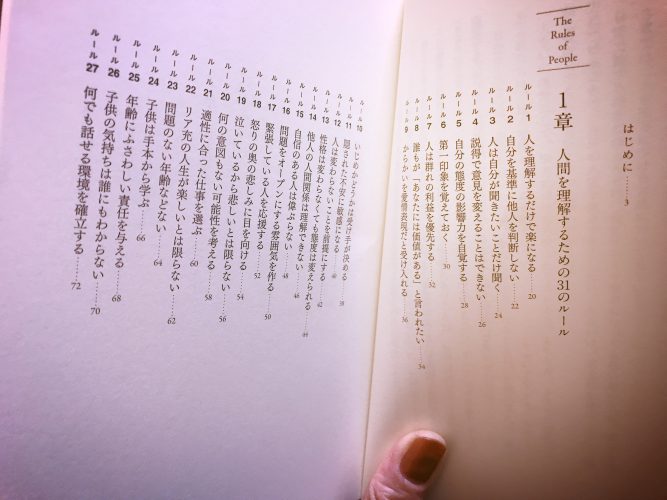 はじめに……3
The
Rules
of
People
1章 人間を理解するための31のルール
ルール1 人を理解するだけで楽になる……20
ルール2 自分を基準に他人を判断しない……22
ルール3 人は自分が聞きたいことだけ聞く……24
ルール4 説得で意見を変えることはできない……26
ルール5 自分の態度の影響力を自覚する……28
ルール6 第一印象を覚えておく……30
ルール7 人は群れの利益を優先する……32
ルール8 誰もが「あなたには価値がある」と言われたい……34
ルール9 からかいを愛情表現だと受け入れる……36
ルール10 いじめかどうかは受け手が決める……38
ルール11 隠された不安に敏感になる……40
ルール12 人は変わらないことを前提にする……42
ルール13 性格は変わらなくても態度は変えられる……44
ルール14 他人の人間関係は理解できない……46
ルール15 自信のある人は偉ぶらない……48
ルール16 問題をオープンにする雰囲気を作る……50
ルール17 緊張している人を応援する……52
ルール18 怒りの奥の悲しみに目を向ける……54
ルール19 泣いているから悲しいとは限らない……56
ルール20 何の意図もない可能性を考える……58
ルール21 適性に合った仕事を選ぶ……60
ルール22 リア充の人生が楽しいとは限らない……62
ルール23 問題のない年齢などない……64
ルール24 子供は手本から学ぶ……66
ルール25 年齢にふさわしい責任を与える……68
ルール26 子供の気持ちは誰にもわからない……70
ルール27 何でも話せる環境を確立する……72